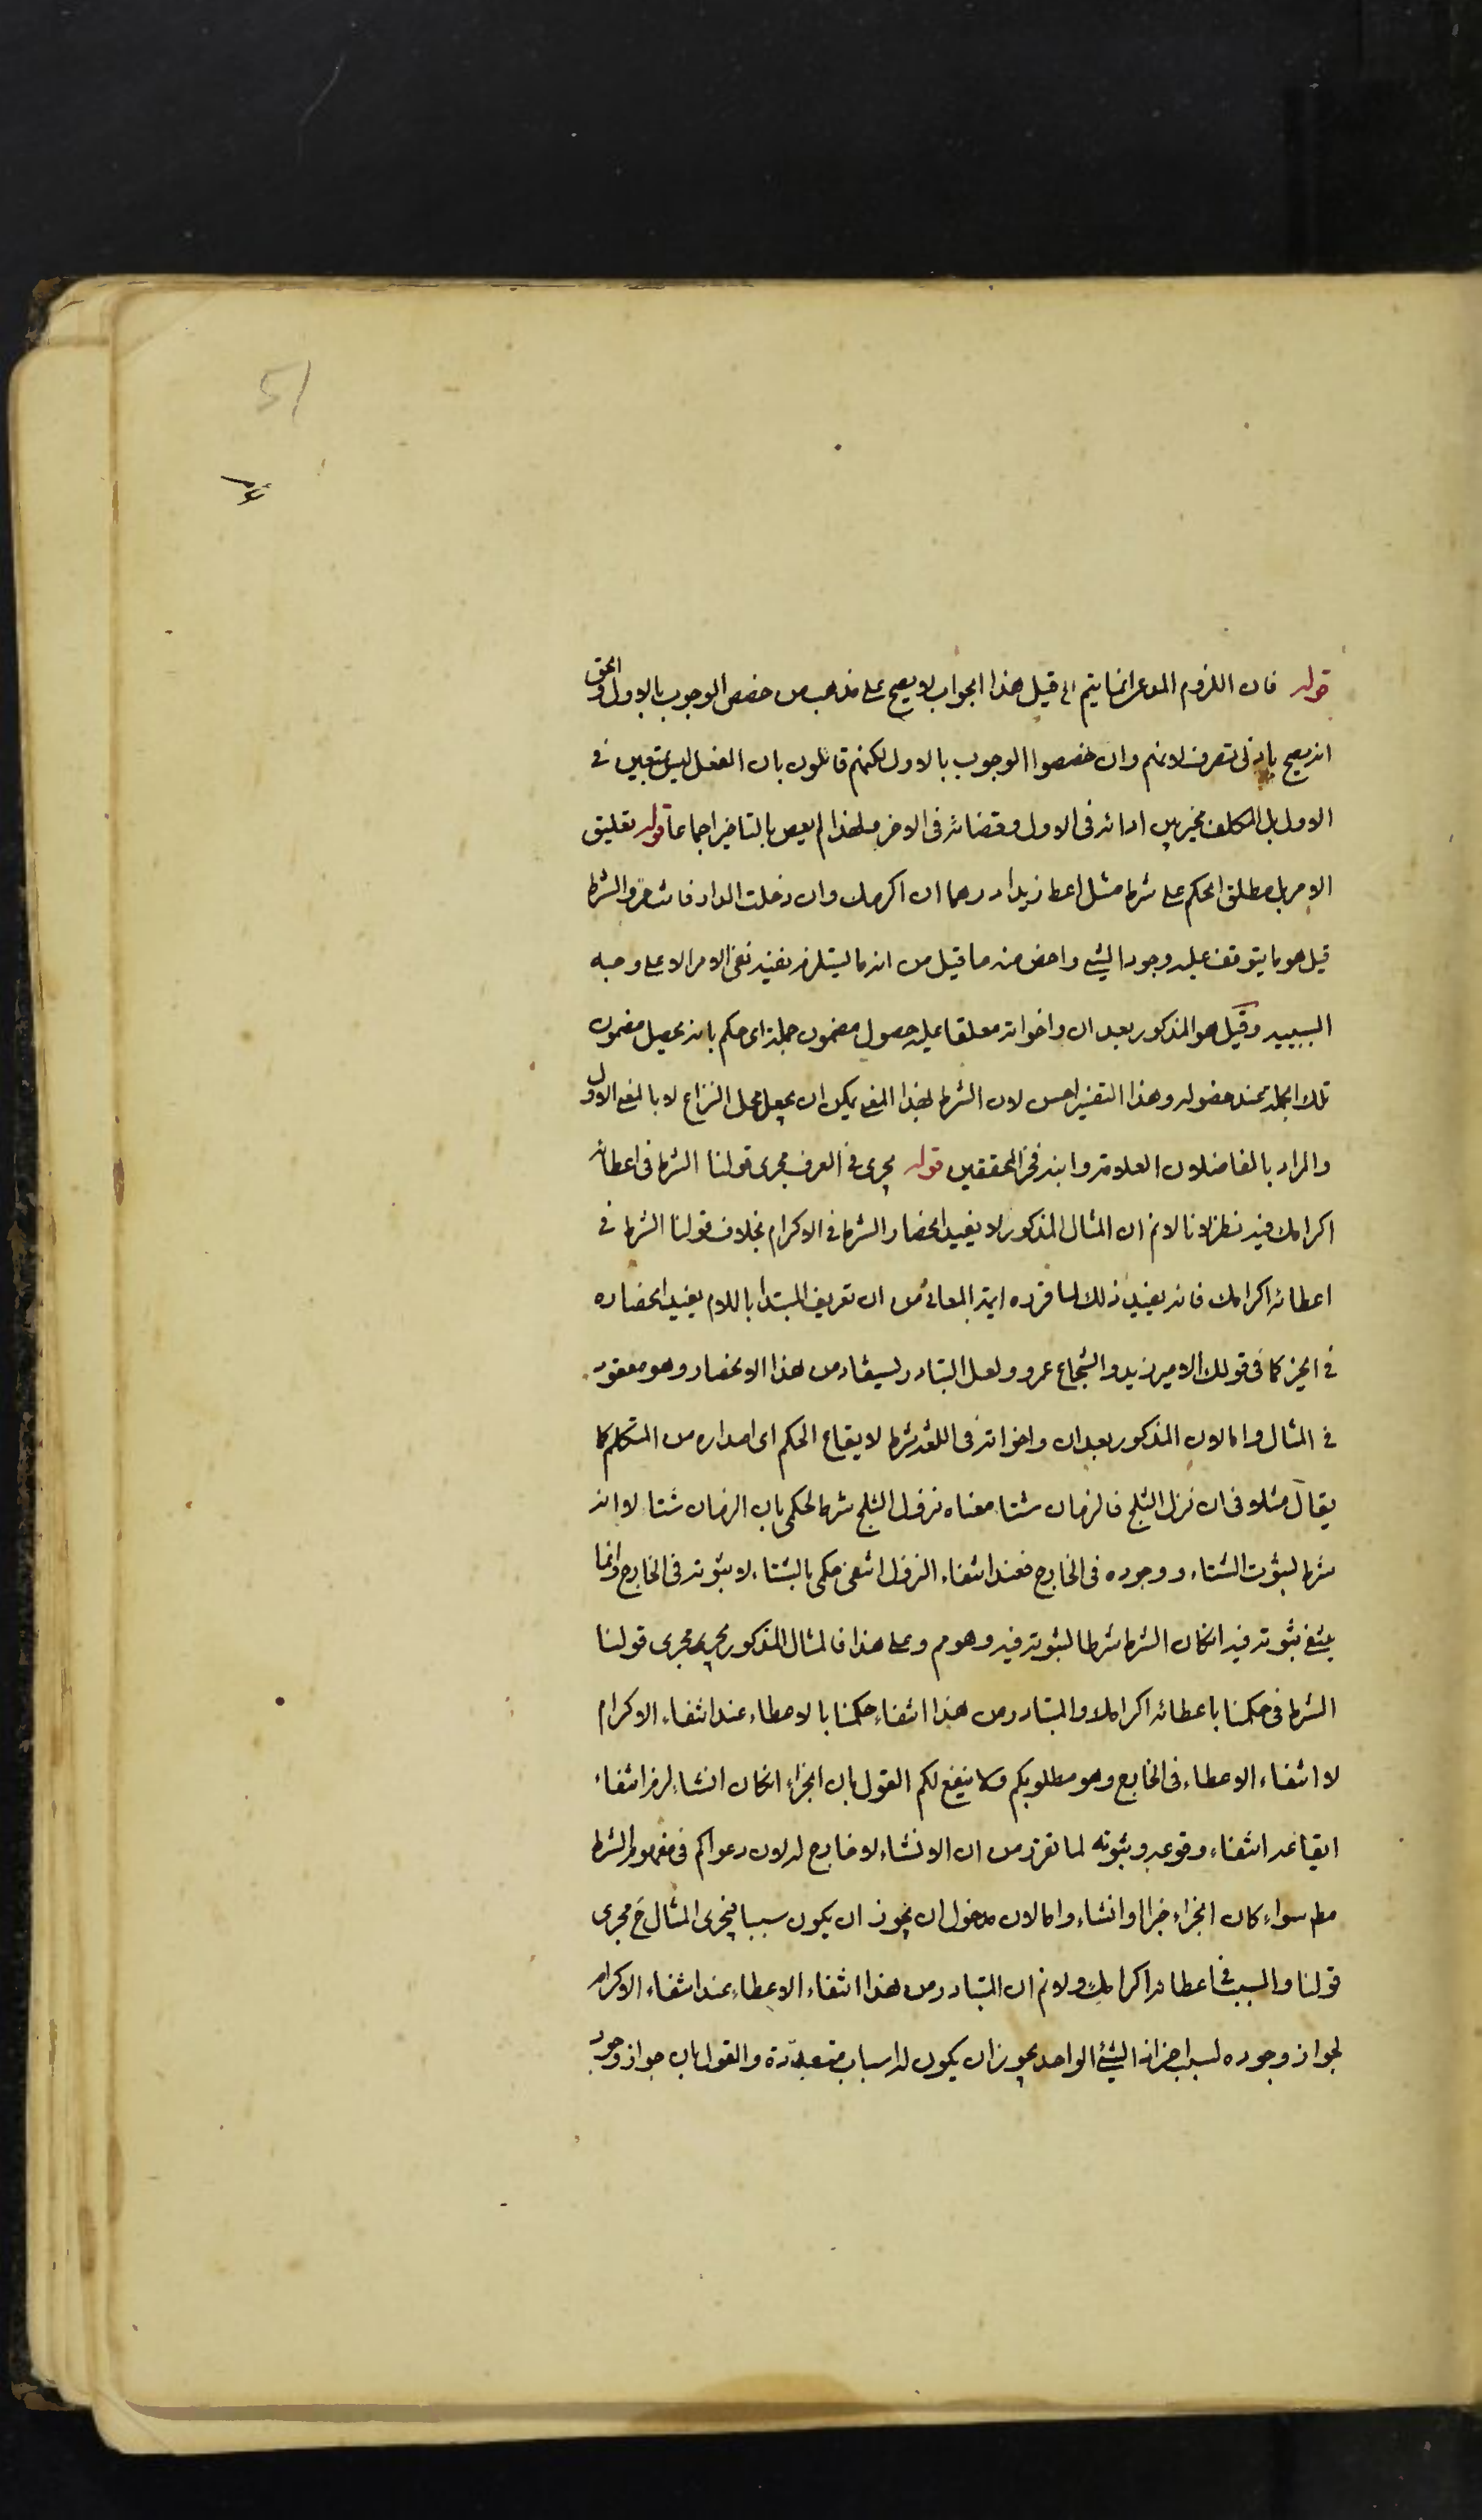 51
قوله فان اللزوم المدعى انما يتم الى قيل هذا الجواب لا يصح على مذهب من خصص الوجوب بالاول والحق
انه يصح بادنى تصرف لانهم وان خصصوا الوجوب بالاول لكنهم قائلون بان الفعل ليس بمتعين في
الاول بل المكلف مخير بين ادائه فى الاول وقضائه فى الاخر ولهذا لم يعص بالتاخير اجماعا قوله تعليق
الامر بل مطلق الحكم على شرط مثل اعط زيدا درهما ان اكرمك وان دخلت الدار فانت حر والشرط
قيل هو ما يتوقف عليه وجود الشيء واخص منه ما قيل من انه ما يستلزم نفيه نفى الامر لا على وجه
السببيه وقيل هو المذكور بعد ان واخواته معلقا عليه حصول مضمون جملة اى حكم بانه يحصل مضمون
تلك الجملة عند حصوله وهذا التفسير احسن لان الشرط بهذا المعنى يمكن ان يجعل محل النزاع لا بالمعنى الاول
والمراد بالفاضلان العلامة وابنه فخر المحققين قوله يجرى في العرف مجرى قولنا الشرط فى اعطائه
اكرامك فيه نظر لانا لانم ان المثال المذكور لا يفيد انحصار الشرط في الاكرام بخلاف قولنا الشرط في
اعطائه اكرامك فانه يفيد ذلك لما قرره ايمة المعاني من ان تعريف المبتدا باللام يفيد انحصاره
في الخبر كما فى قولك الامير زيد والشجاع عمرو ولعل التبادر يستفاد من هذا الانحصار وهو مفقود
في المثال واما لان المذكور بعد ان واخواته فى اللغة شرط لايقاع الحكم اى اصداره من المتكلم كما
يقال مثلا فى ان نزل الثلج فالزمان شتا معناه نزول الثلج شرط لحكمى بان الزمان شتا لا انه
شرط لثبوت الشتاء ووجوده فى الخارج فعند انتفاء النزول انتفى حكمى بالشتاء لا ثبوته فى الخارج وانما
ينتفى ثبوته فيه ان كان الشرط شرطا لثبوته فيه وهو مم وعلى هذا فالمثال المذكور يجرى مجرى قولنا
الشرط فى حكمنا باعطائه اكرامك والمتبادر من هذا انتفاء حكمنا بالاعطاء عند انتفاء الاكرام
لا انتفاء الاعطاء فى الخارج وهو مطلوبكم ولا ينفع لكم القول بان الجزاء ان كان انشاء لزم انتفاء
ايقاعه انتفاء وقوعه وثبوته لما تقرر من ان الانشاء لا خارج له لان دعواكم فى مفهوم الشرط
مطم سواء كان الجزاء خبرا او انشاء واما لان مدخول ان يجوز ان يكون سببا فيجرى المثال ح مجرى
قولنا والسبب في اعطائه اكرامك ولا نم ان المتبادر من هذا انتفاء الاعطاء عند انتفاء الاكرام
لجواز وجوده لسبب اخر اذ الشيء الواحد يجوز ان يكون له اسباب متعددة والقول بان جواز وجود